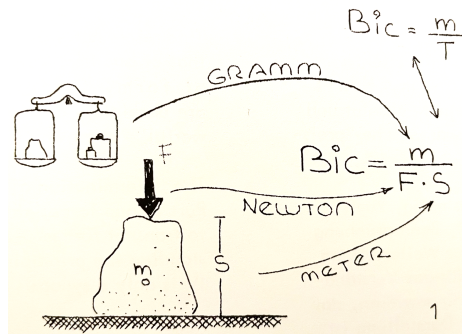 Bic = m/T
GRAMM
F
Bic = m/F·S
NEWTON
m
S
METER
1